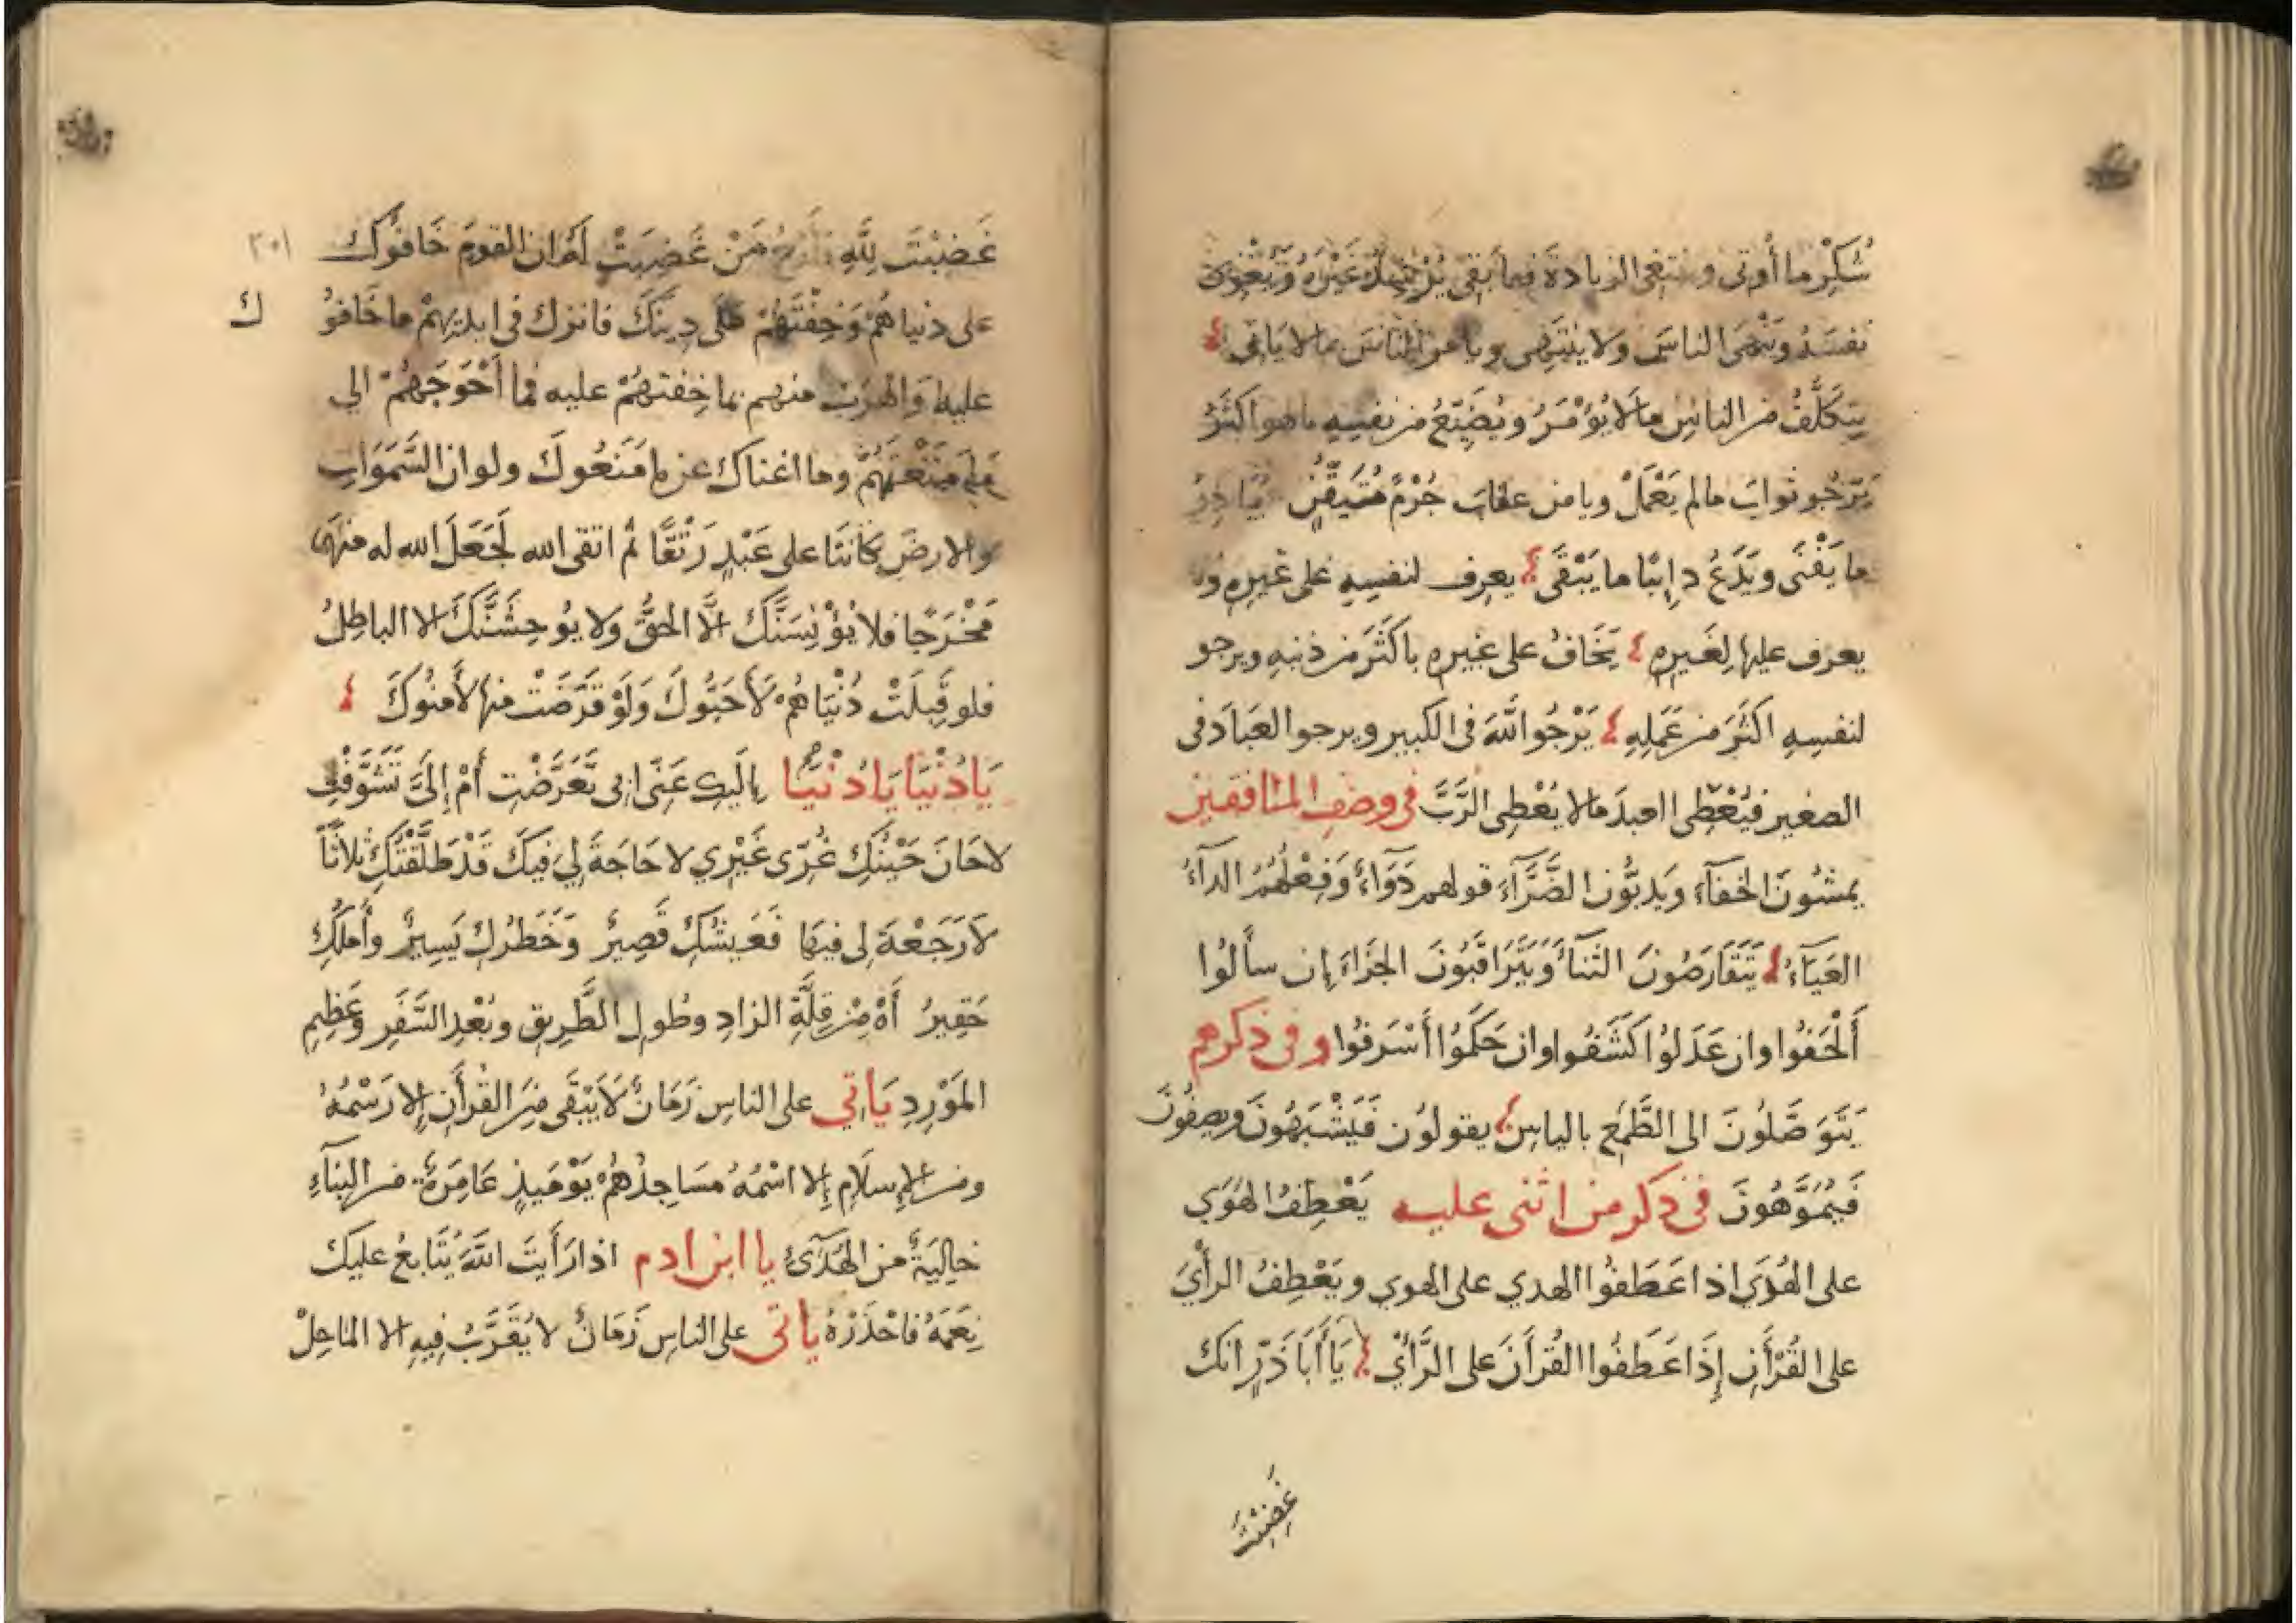 شُكْرَ ما أُوتى ويبتغى الزيادة فيما بقى يُرْشِدُ غَيْرَهُ وَيُغْوى
نفسَهُ ويَنْهَى الناسَ ولا ينتهى ويامرُ الناسَ بما لا يَاتى
يتكَلَّفُ من الناسِ مالا يُؤْمَرُ ويُضَيّعُ من نفسِهِ ما هو اكثَرُ
يَرْجُو ثوابَ مالم يَعْمَلْ ويامن عقابَ جُرْمٍ مُتَيقّنٍ يُبَادِرُ
ما يَفْنَى ويَدَعُ دايبًا ما يَبْقَى يعرف لنفسِهِ على غيرِهِ ولا
يعرف عليها لِغَيرِهِ يَخَافُ على غيرِهِ باكثَرَ من ذنبِهِ ويرجو
لنفسِهِ اكثَرَ من عَمَلِهِ يَرْجُو اللَّهَ فى الكبير ويرجوا العَبادَ فى
الصغير فيُعْطِى العبدَ مالا يُعْطِى الرَّبَّ فى وصف المنافقين
يمشُونَ الخفآءَ ويَدبُّونَ الضَّرَّآءَ قولهم دَوَآءٌ وَفِعْلُهُمُ الدآءُ
العَيَآءُ يَتَقَارَضُونَ الثنآءَ وَيَتَرَاقَبُونَ الجَزَآءَ إن سألُوا
أَلْحَفُوا وان عَدَلُوا كَشَفُوا وان حَكَمُوا أَسْرَفُوا وفى ذكرهم
يَتَوَصَّلُونَ الى الطَّمَعِ بالياسِ يقولُون فَيُشْبَهُونَ ويصِفُونَ
فَيُمَوِّهُونَ فى ذكر من اثنى عليه يَعْطِفُ الهَوَي
على الهُدَي اذا عَطَفُوا الهدي على الهوي ويَعْطِفُ الرأْيَ
على القُرْأَنِ إِذَا عَطَفُوا القُرأَنَ على الرَّأْيِ يَا أَبَا ذَرٍّ انك
غَضِبْتَ
غَضِبْتَ لِلَّهِ فَارْجُ مَنْ غَضِبَتْ لَهُ ان القومَ خَافُوكَ
٢٠١
على دنياهُمْ وَخِفْتَهُمْ على دِينِكَ فاترك فى ايديهِمْ ما خَافُو
ك
عليه وَاهْرَبْ منهم بما خِفْتَهُمْ عليه فما أَحْوَجَهُمْ الى
ما مَنَعْتَهُمْ وما اغناك عن ما مَنَعُوكَ ولو ان السَّمَوَاتِ
والارضَ كانَتَا على عَبْدٍ رَتْقًا ثم اتقى الله لَجَعَلَ الله له منهما
مَخْرَجًا فلا يُؤْنِسَنَّكَ الَّا الحقُّ ولا يُوحِشَنَّكَ الا الباطِلُ
فلو قَبِلَتْ دُنْيَاهُمْ لَأَحَبُّوكَ وَلَوْ قَرَضَتْ منها لأَمنُوكَ
يَا دُنْيَا يَا دُنْيَا إليكِ عَنِّى ابى تَعَرَّضْتِ أَمْ إِلَىَّ تَشَوَّقْتِ
لا حَانَ حَيْنُكِ غُرّى غَيْرِي لا حَاجَةَ لِي فيكَ قَدْ طَلَّقْتُكِ ثلاثًا
لَا رَجْعَةَ لى فيها فَعَيشُكِ قَصِيرٌ وَخَطَرُكِ يَسِيرٌ وأَملُكِ
حَقِيرٌ أَهْ مِنْ قِلَّةِ الزادِ وطُولِ الطَّرِيقِ وبُعْدِ السَّفَرِ وعَظِيمِ
المَوْرِدِ يَاتى على الناسِ زَمَانٌ لَا يَبْقَى مِنَ القُرأَنِ إلا رَسْمُهُ
ومن الإسلَامِ إلا اسْمُهُ مسَاجِدُهُمْ يَوْمَيذٍ عَامِرَةٌ من البنآءِ
خالِيَةٌ من الهُدَى يا ابن ادم اذا رَأَيتَ اللَّهَ يُتَابعُ عليكَ
نِعَمَهُ فاحْذَرْهُ ياتى على الناسِ زَمَانٌ لا يُقَرَّبُ فيهِ الا الماحِلْ